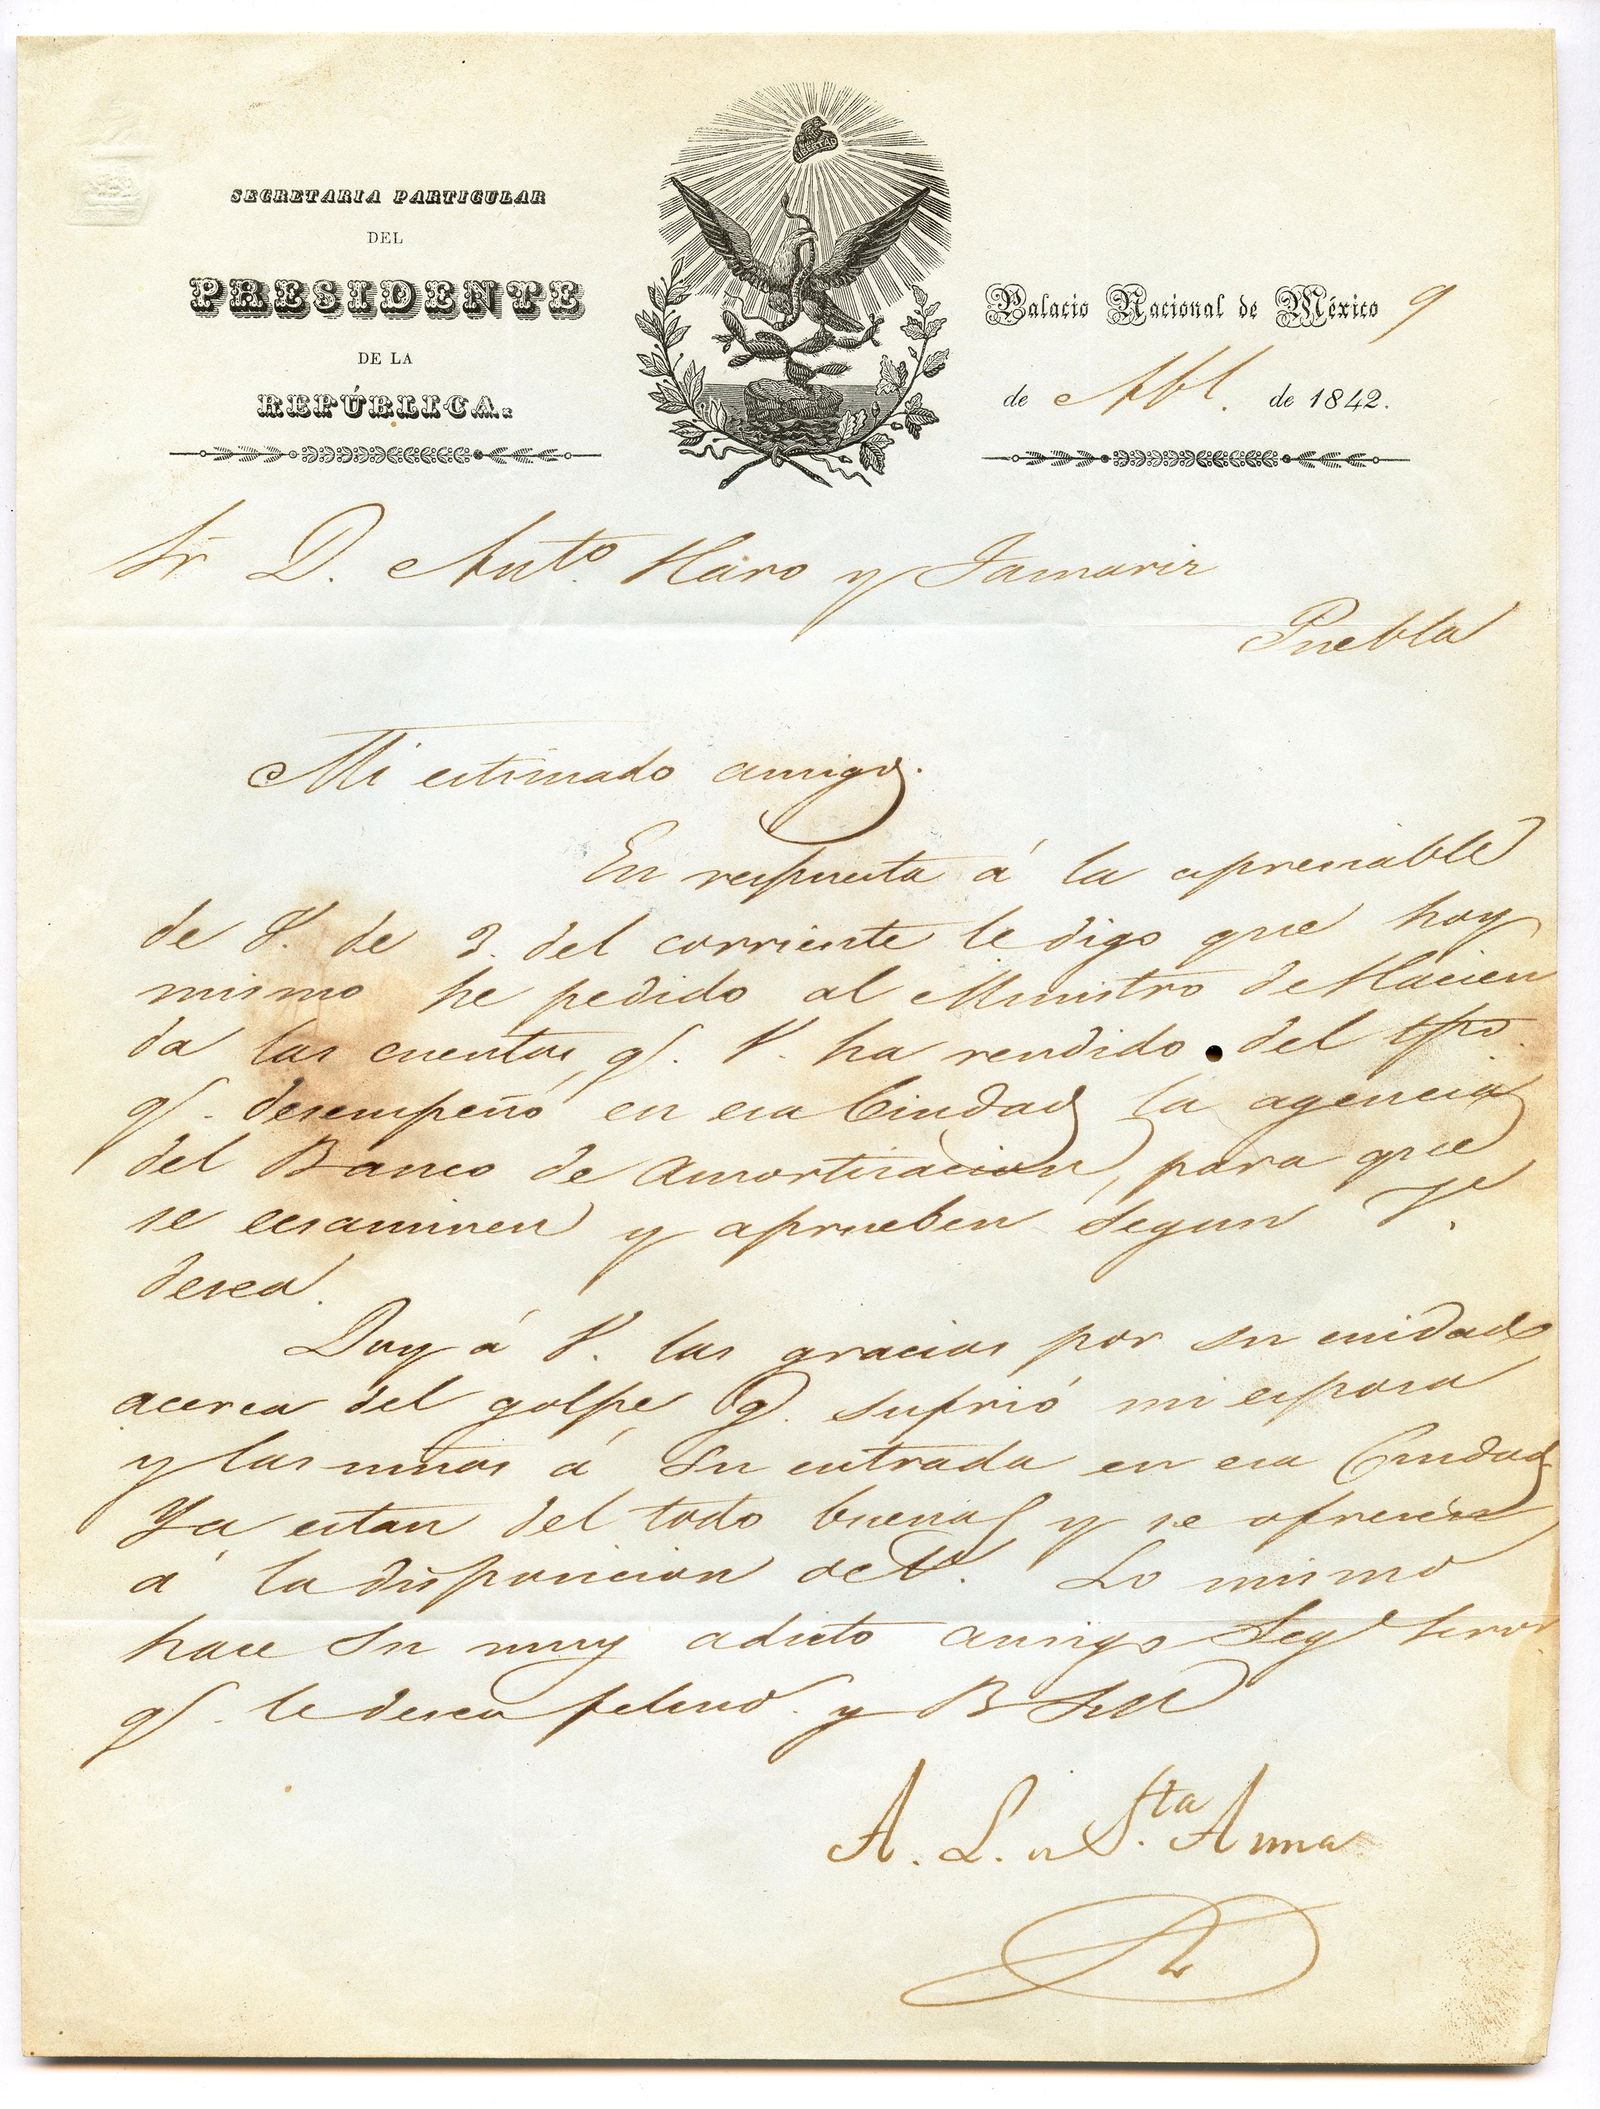 SECRETARIA PARTICULAR
DEL
PRESIDENTE
DE LA
REPÚBLICA.
LIBERTAD
Palacio Nacional de México 9
de Abl. de 1842.
Sr. D. Anto. Haro y Tamariz
Puebla
Mi estimado amigo.
En respuesta á la apreciable
de V. de 3. del corriente le digo que hoy
mismo he pedido al Ministro de Hacien
da las cuentas q. V. ha rendido del tpo.
q. desempeñó en esa Ciudad la agencia
del Banco de Amortizacion, para que
se ecsaminen y aprueben segun V.
desea.
Doy á V. las gracias por su cuidado
acerca del golpe q. sufrió mi esposa
y las niñas á su entrada en esa Ciudad
Ya estan del todo buenas y se ofrecen
á la disposicion de V. Lo mismo
hace su muy adicto amigo Segº servor
q. le desea felicid. y B S M
A. L. de Sta. Anna